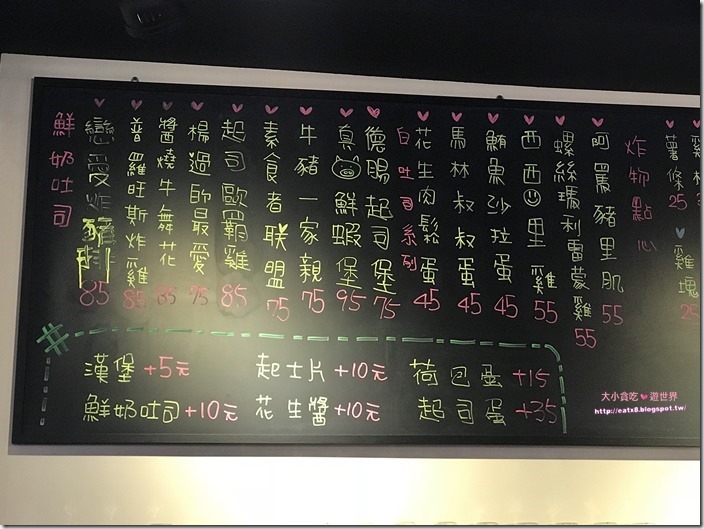 鮮奶吐司
炸豬排 85
普羅旺斯炸雞 85
醬燒牛舞花 85
楊過的最愛 95
起司歐霸雞 85
素食者聯盟 75
牛豬一家親 75
鮮蝦堡 95
德腸起司堡 75
白吐司系列
花生肉鬆蛋 45
馬林叔叔蛋 45
鮪魚沙拉蛋 45
西西里雞 55
螺絲瑪利雷蒙雞 55
阿黑豬里肌 55
炸物點心
薯條 25
雞塊 25
漢堡+5元 起士片+10元 荷包蛋+15
鮮奶吐司+10元 花生醬+10元 起司蛋+35
大小貪吃❤遊世界
http://eatx8.blogspot.tw/